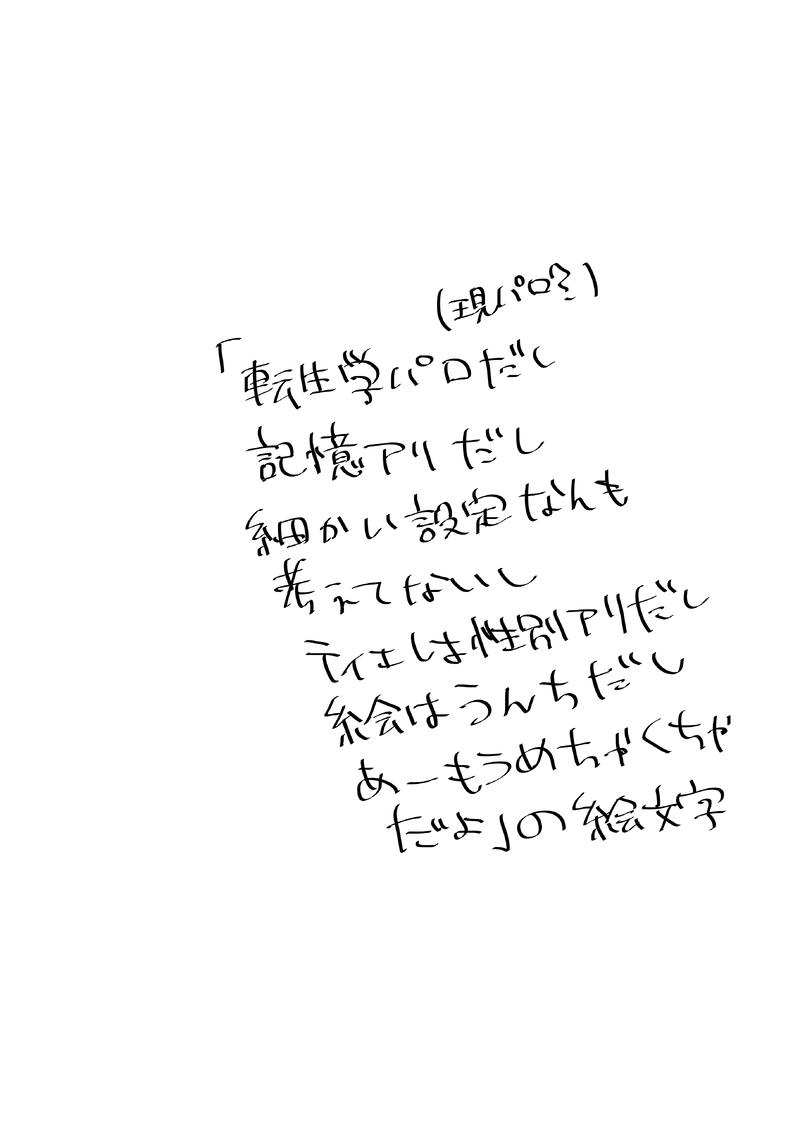 (現パロ?)
「転生学パロだし
記憶アリだし
細かい設定なんも
考えてないし
ティエレは性別アリだし
絵はうんちだし
あーもうめちゃくちゃ
だよ」の絵文字